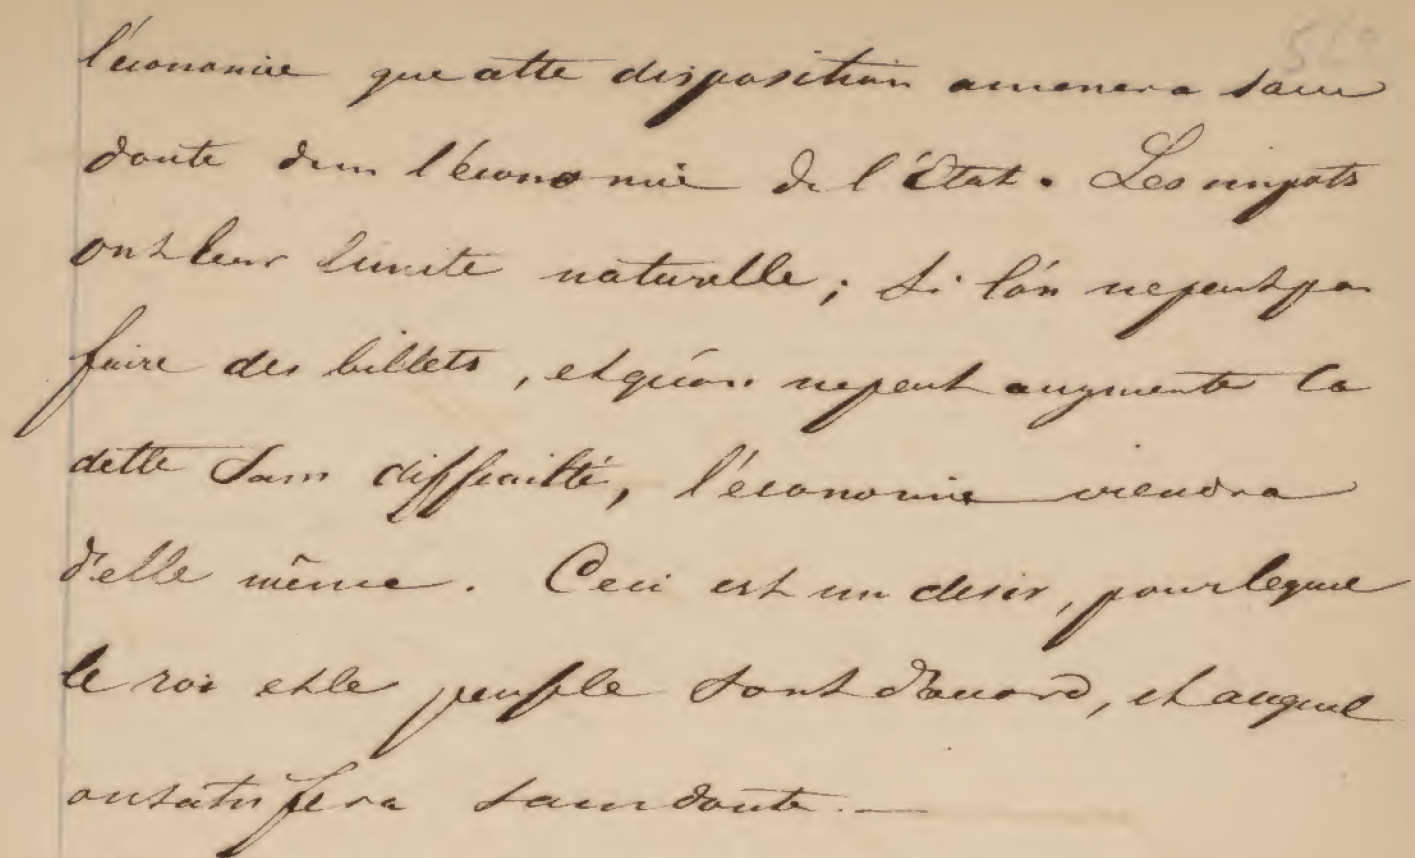 l'économie que cette disposition amenera sans
doute dans l'économie de l'État. Les impots
ont leur limite naturelle; si l'on ne peut pas
faire des billets, et qu'on ne peut augmenter la
dette sans difficulté, l'économie viendra
d'elle même. Ceci est un desir, pour lequel
le roi et le peuple sont d'accord, et auquel
on satisfera sans doute.—